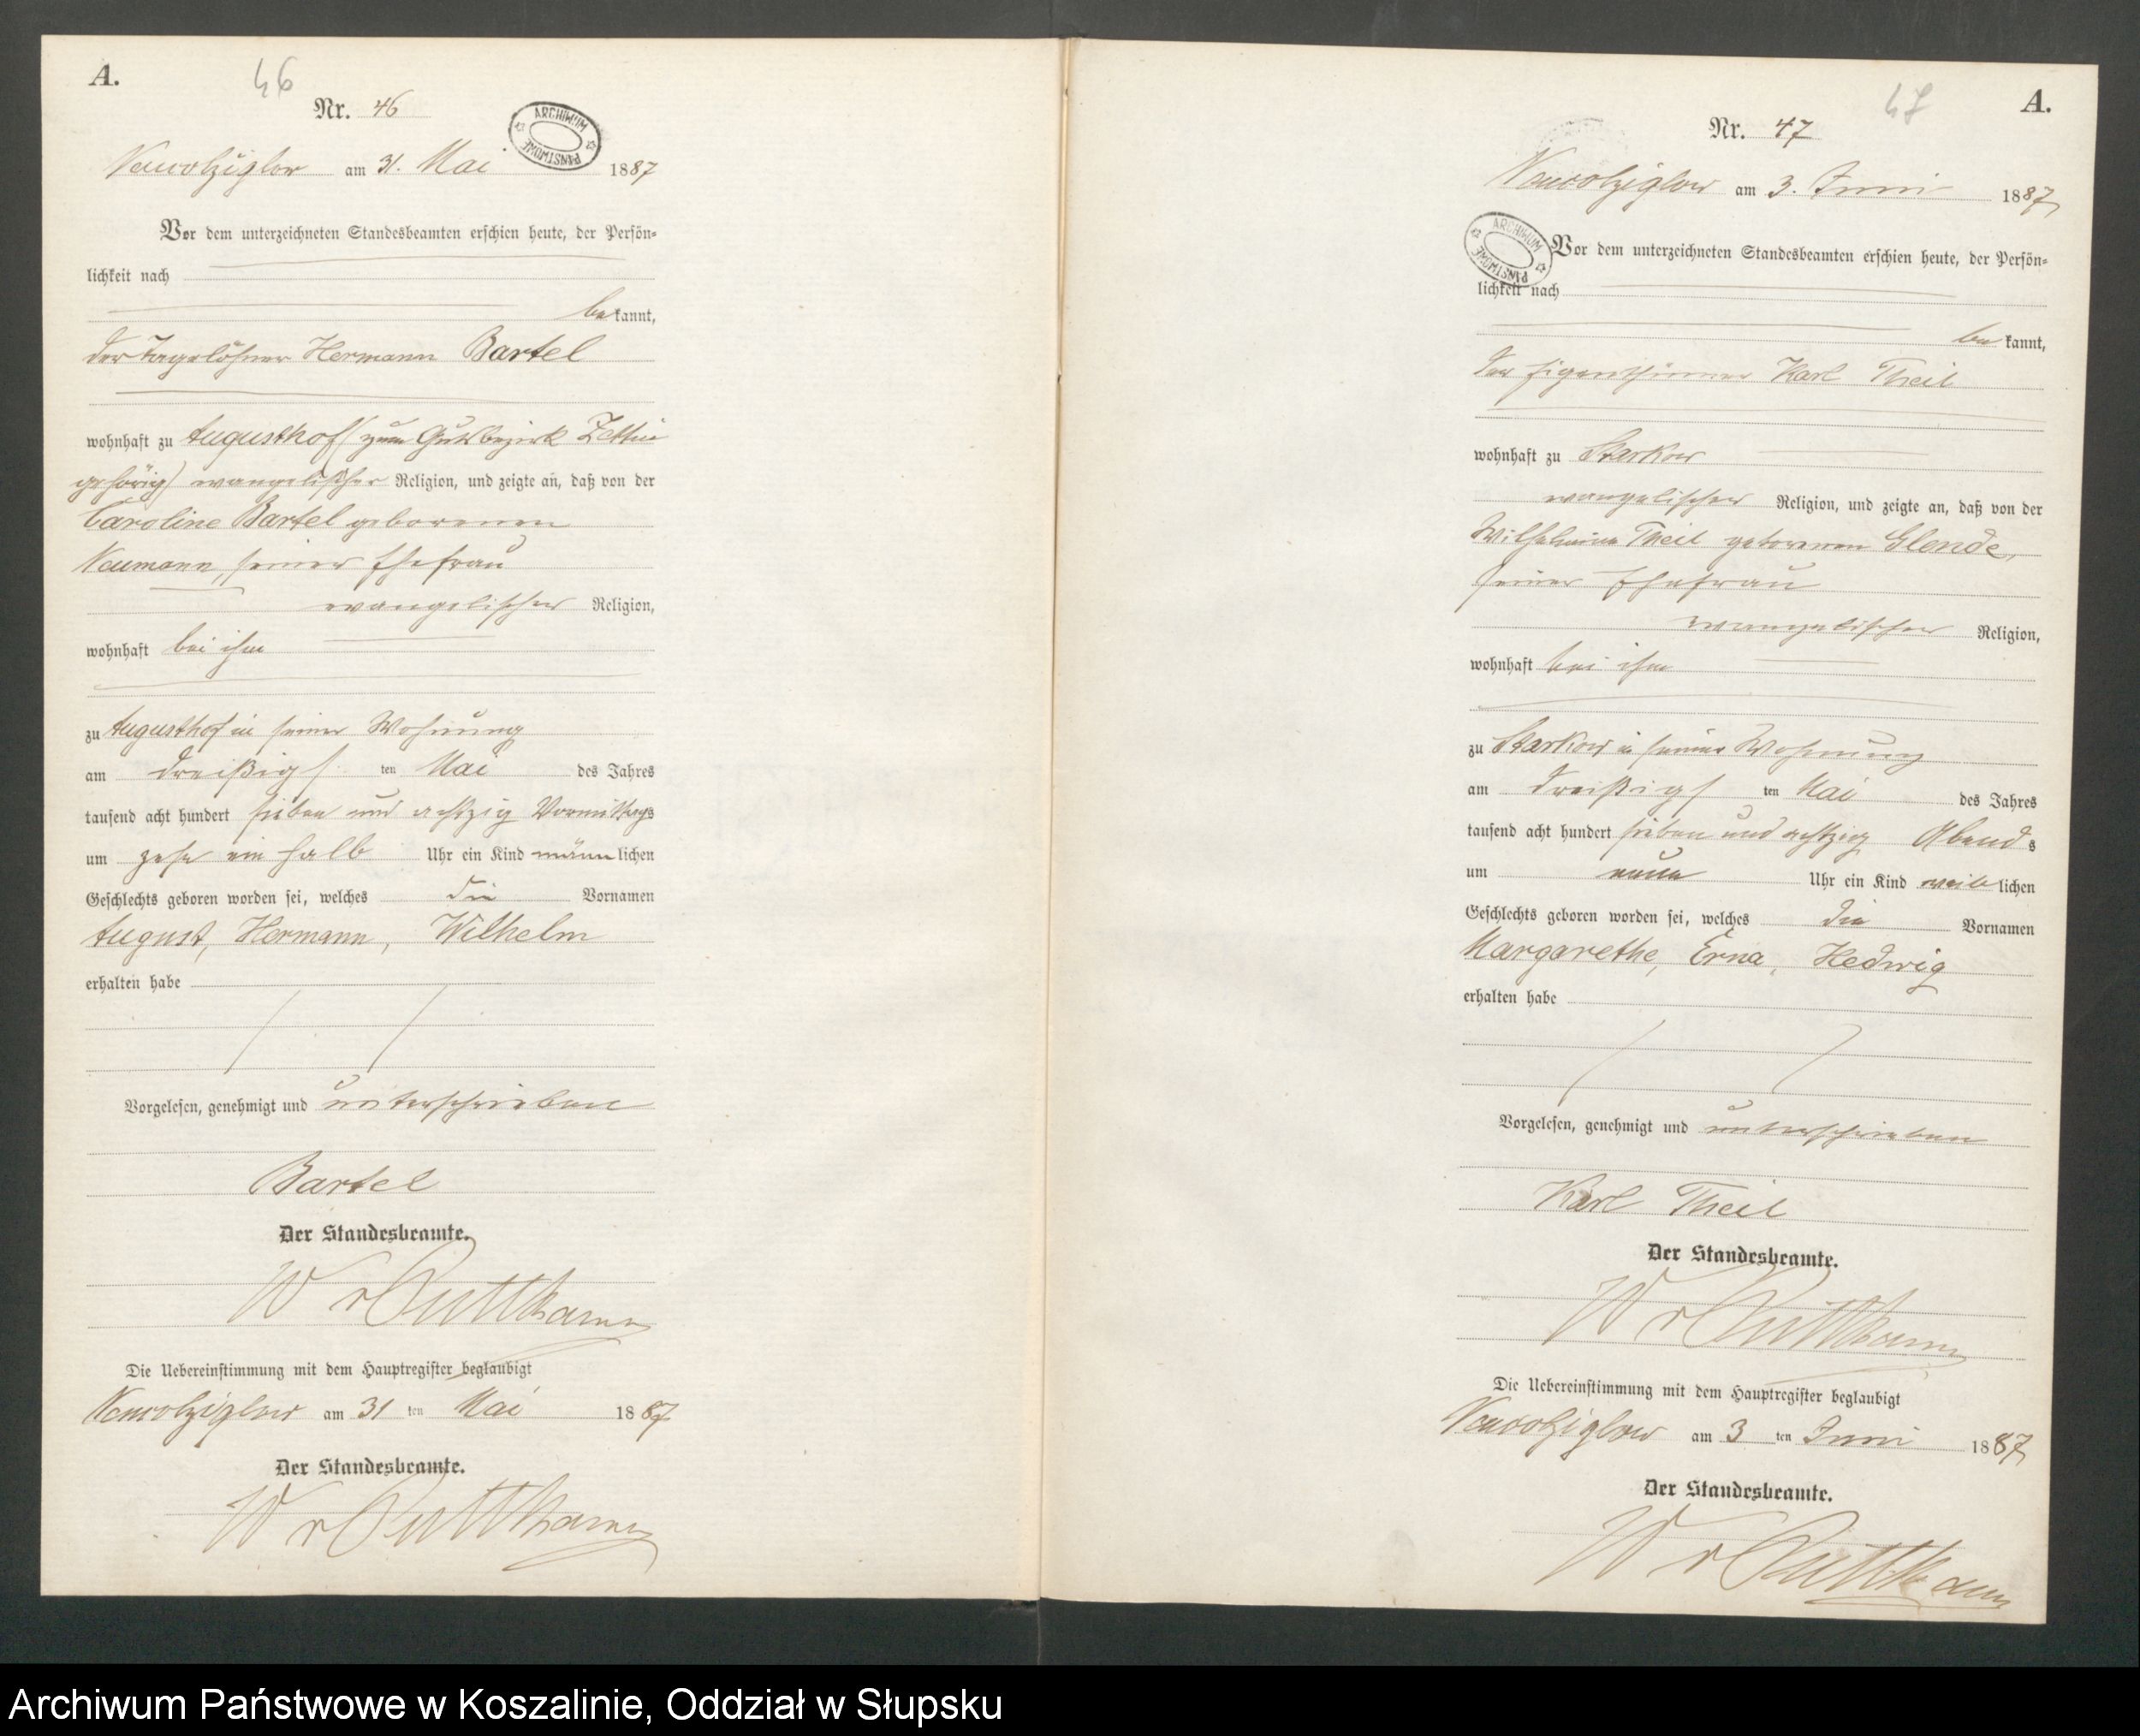 A.
46
Nr. 46
ARCHIWUM PAŃSTWOWE
Neuwolziglow am 31. Mai 1887
Vor dem unterzeichneten Standesbeamten erschien heute, der Persön-
lichkeit nach
bekannt,
der Tagelöhner Hermann Bartel
wohnhaft zu Augusthof (zum Gutsbezirk Zettin
gehörig) evangelischer Religion, und zeigte an, daß von der
Caroline Bartel geborenen
Neumann, seiner Ehefrau
evangelischer Religion,
wohnhaft bei ihm
zu Augusthof in seiner Wohnung
am dreißigsten Mai des Jahres
tausend acht hundert sieben und achtzig Vormittags
um zehn ein halb Uhr ein Kind männlichen
Geschlechts geboren worden sei, welches die Vornamen
August, Hermann, Wilhelm
erhalten habe
Vorgelesen, genehmigt und unterschrieben
Bartel
Der Standesbeamte.
W v Puttkamer
Die Uebereinstimmung mit dem Hauptregister beglaubigt
Neuwolziglow am 31 ten Mai 1887
Der Standesbeamte.
W v Puttkamer
47
A.
Nr. 47
Neuwolziglow am 3. Juni 1887
ARCHIWUM PAŃSTWOWE
Vor dem unterzeichneten Standesbeamten erschien heute, der Persön-
lichkeit nach
bekannt,
der Eigenthümer Karl Theil
wohnhaft zu Starkow
evangelischer Religion, und zeigte an, daß von der
Wilhelmine Theil geborenen Glende,
seiner Ehefrau
evangelischer Religion,
wohnhaft bei ihm
zu Starkow in seiner Wohnung
am dreißigsten Mai des Jahres
tausend acht hundert sieben und achtzig Abends
um neun Uhr ein Kind weiblichen
Geschlechts geboren worden sei, welches die Vornamen
Margarethe, Erna, Hedwig
erhalten habe
Vorgelesen, genehmigt und unterschrieben
Karl Theil
Der Standesbeamte.
W v Puttkamer
Die Uebereinstimmung mit dem Hauptregister beglaubigt
Neuwolziglow am 3 ten Juni 1887
Der Standesbeamte.
W v Puttkamer
Archiwum Państwowe w Koszalinie, Oddział w Słupsku